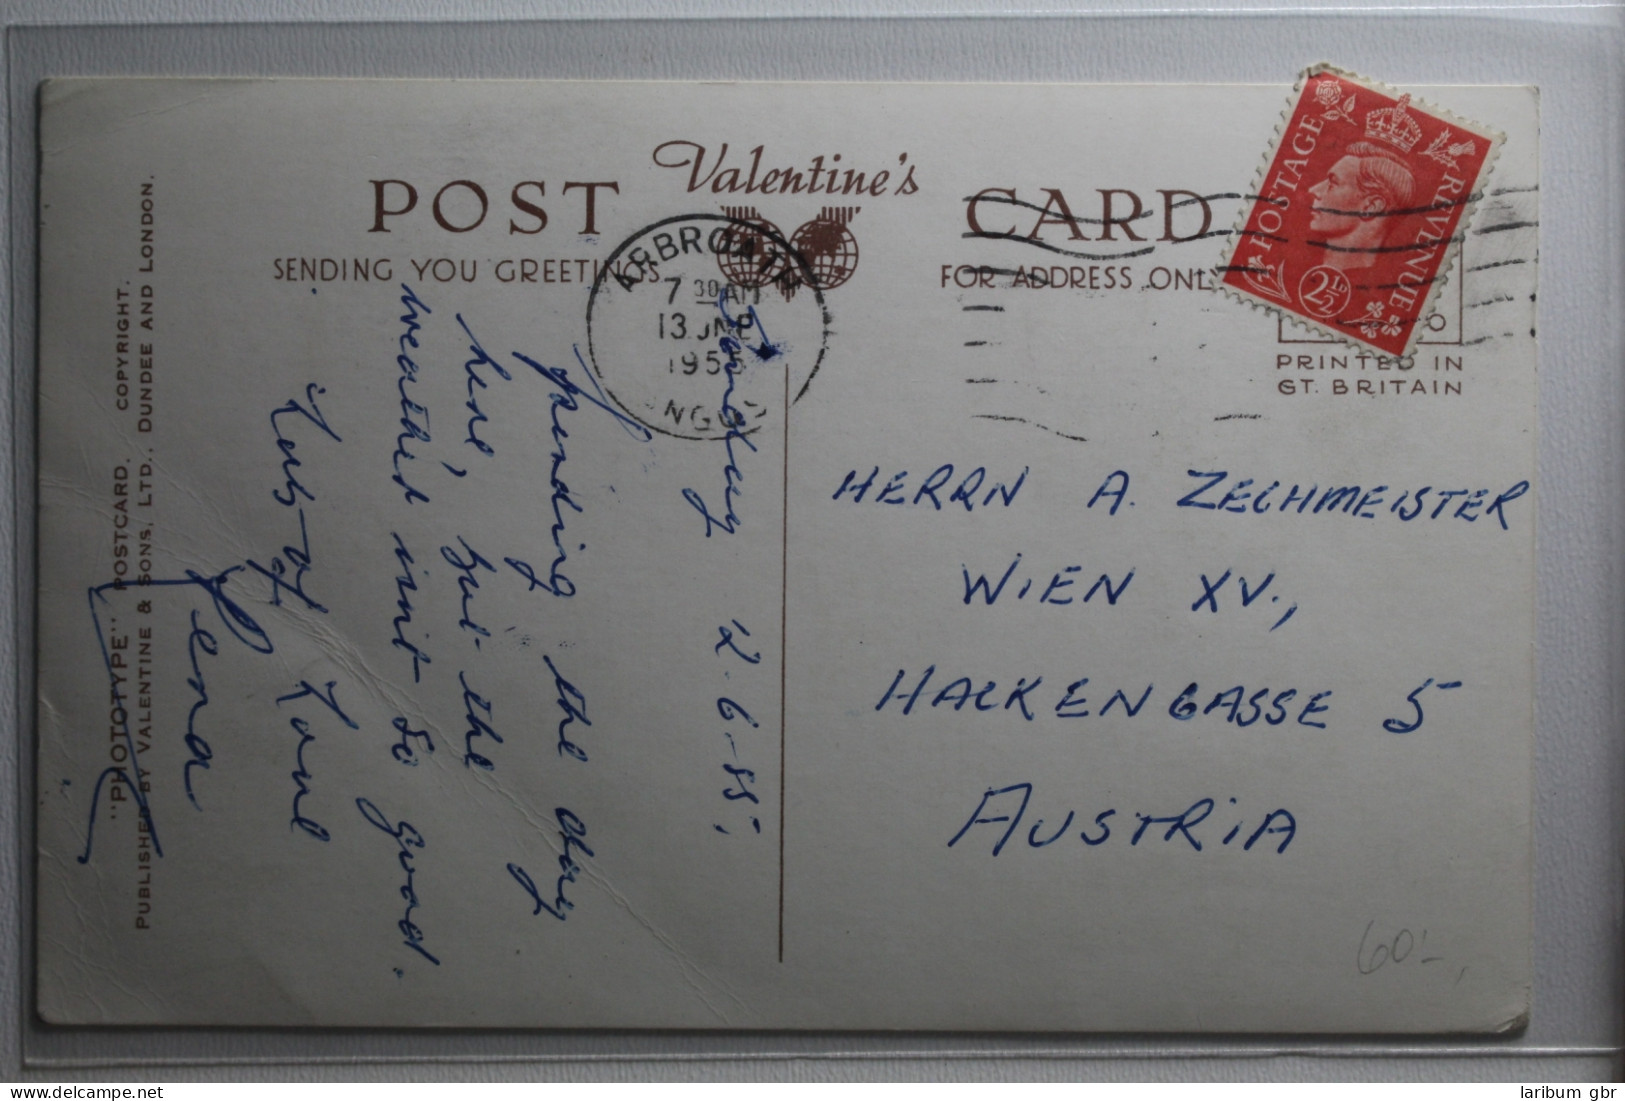 Valentine's
POST CARD
SENDING YOU GREETINGS
FOR ADDRESS ONLY
ARBROATH
7 30 AM
13 JNE
195
POSTAGE REVENUE
2½D
PRINTED IN
GT. BRITAIN
Sunday 2-6-55,
spending the day
here, but the
weather isn't so good.
Lots of Love
Lena
HERRN A. ZECHMEISTER
WIEN XV.,
HACKENGASSE 5
AUSTRIA
60.-
"PHOTOTYPE" POSTCARD. COPYRIGHT.
PUBLISHED BY VALENTINE & SONS, LTD., DUNDEE AND LONDON.
laribum gbr
www.delcampe.net